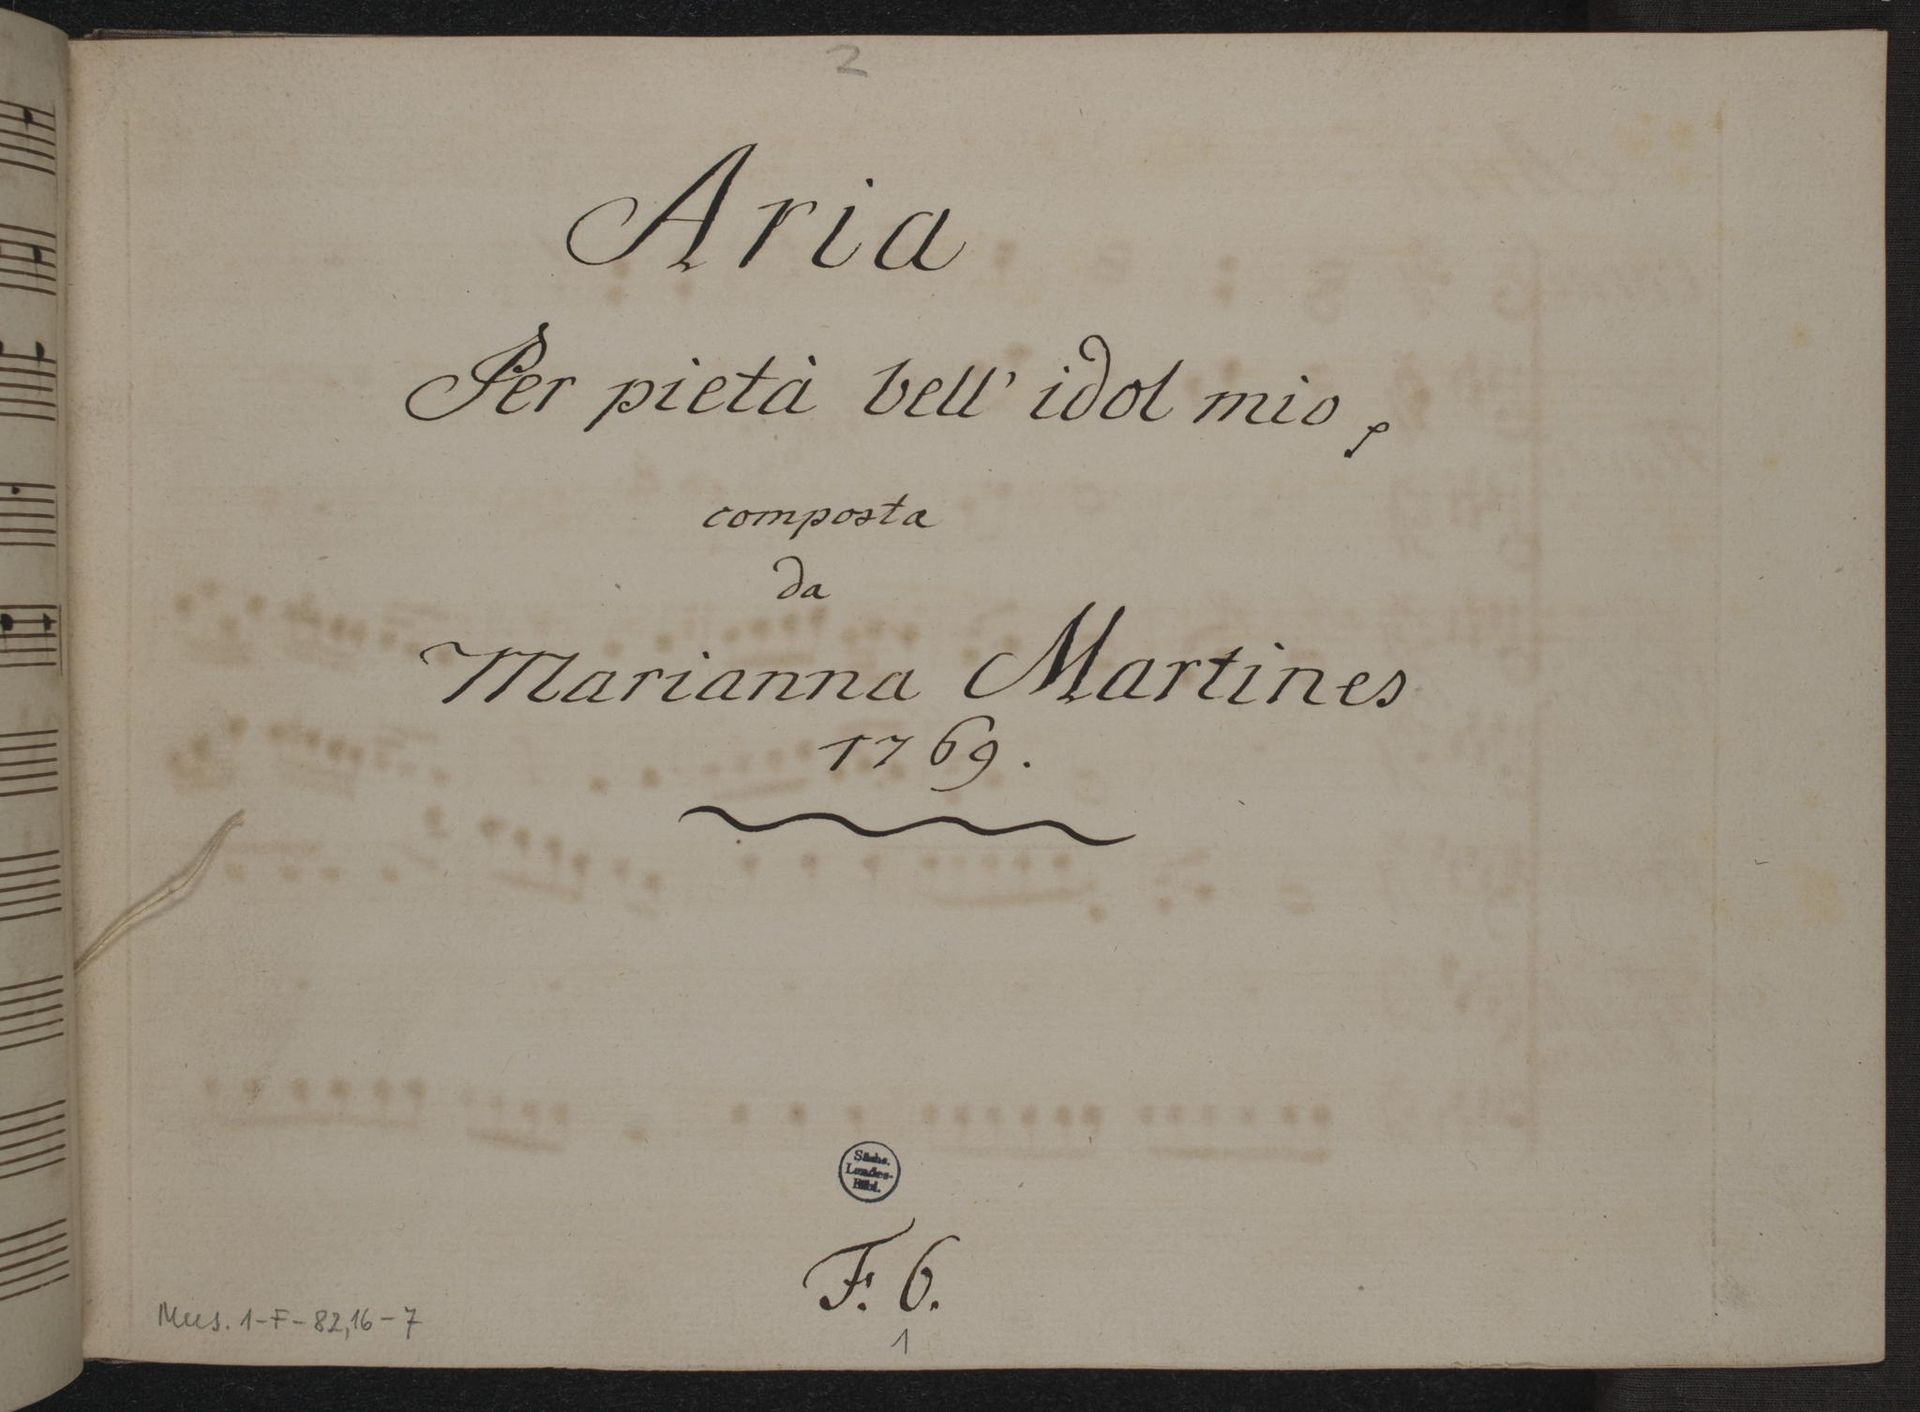 2
Aria
Per pietà bell' idol mio,
composta
da
Marianna Martines
1769.
Sächs.
Landes-
Bibl.
F. 6.
1
Mus. 1-F-82,16-7